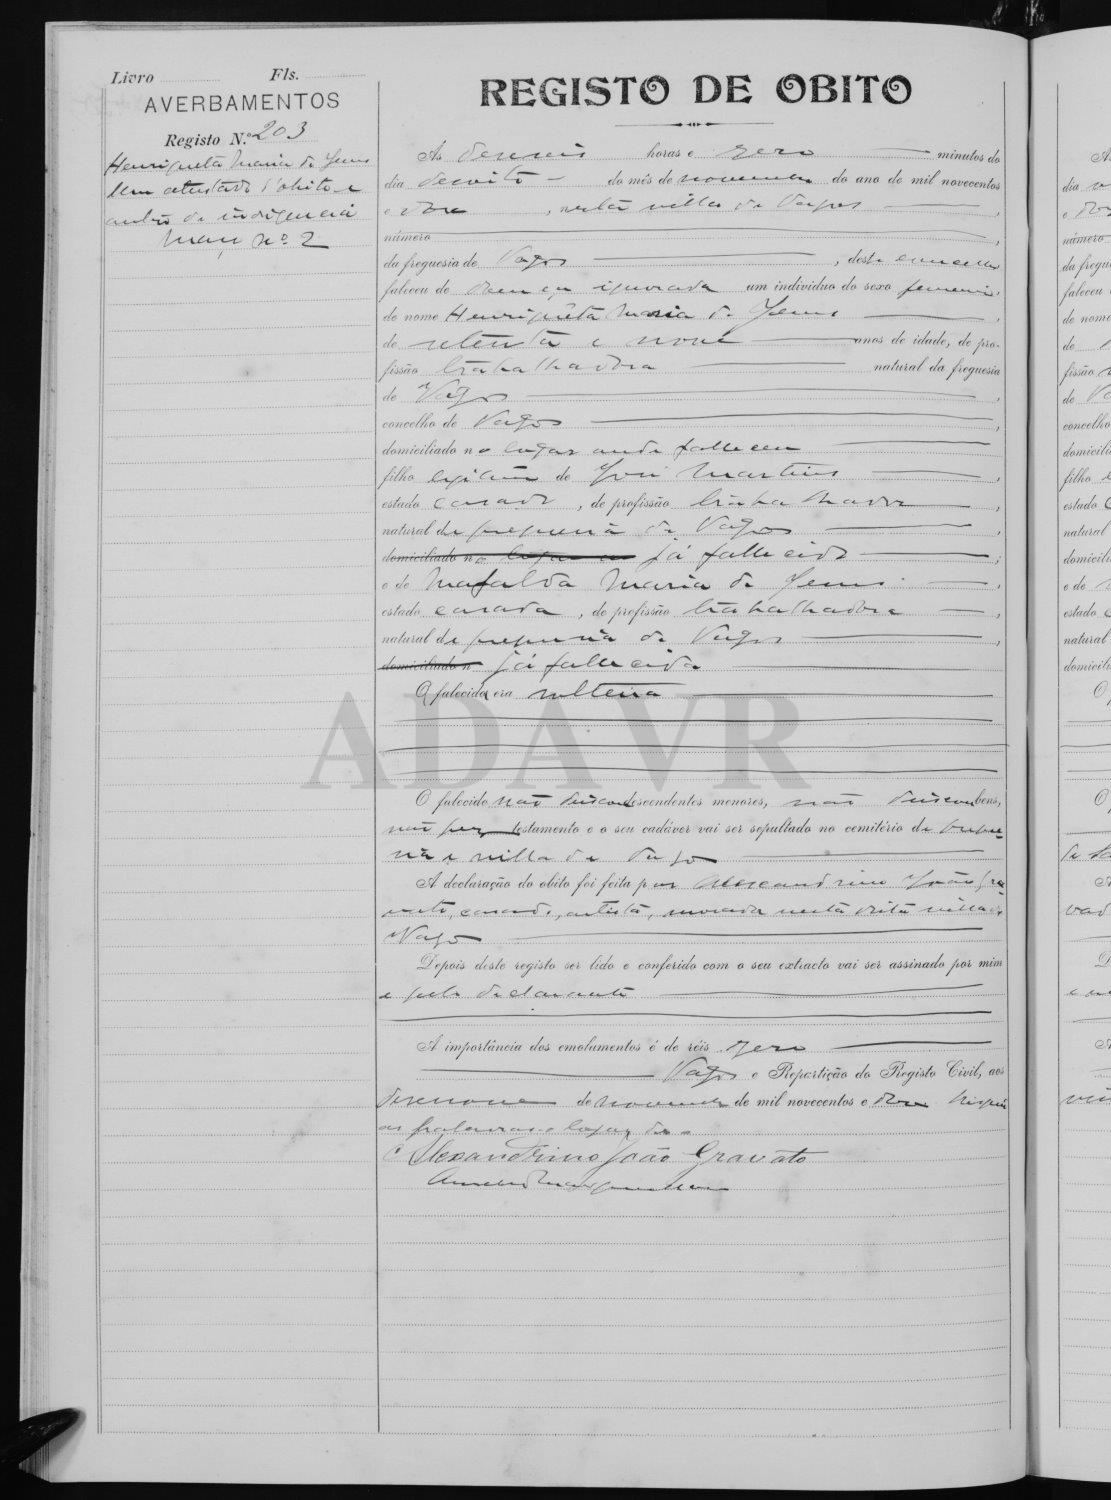 Livro Fls.
AVERBAMENTOS
Registo N.º 203
Henriqueta Maria de Jesus
tem atestado d'obito e
outro de indigencia
Maço nº 2
REGISTO DE OBITO
As deseseis horas e zero minutos do
dia desoito do mês de novembro do ano de mil novecentos
e doze, nesta villa de Vagos,
número
da freguesia de Vagos, deste concelho
faleceu de doença ignorada um individuo do sexo femenino
de nome Henriquêta Maria de Jesus,
de setenta e nove anos de idade, de pro-
fissão trabalhadora natural da freguesia
de Vagos,
concelho de Vagos,
domiciliado no lugar onde falleceu
filho legitimo de José Martins,
estado casado, de profissão trabalhador,
natural da freguesia de Vagos,
domiciliado no lugar já fallecido;
e de Mafalda Maria de Jesus,
estado casada, de profissão trabalhadora,
natural da freguesia de Vagos,
domiciliado n já fallecida
A falecida era solteira
ADAVR
O falecido não deixou descendentes menores, não deixou bens,
não fez testamento e o seu cadáver vai ser sepultado no cemitério da fregue-
sia e villa de Vagos
A declaração do obito foi feita por Alexandrino João Gra-
vato, casado, artista, morador nesta dita villa de
Vagos
Depois deste registo ser lido e conferido com o seu extracto vai ser assinado por mim
e pelo declarante
A importância dos emolumentos é de réis zero
Vagos e Repartição do Registo Civil, aos
desenove de novembro de mil novecentos e doze
as palavras lugar
Alexandrino João Gravato